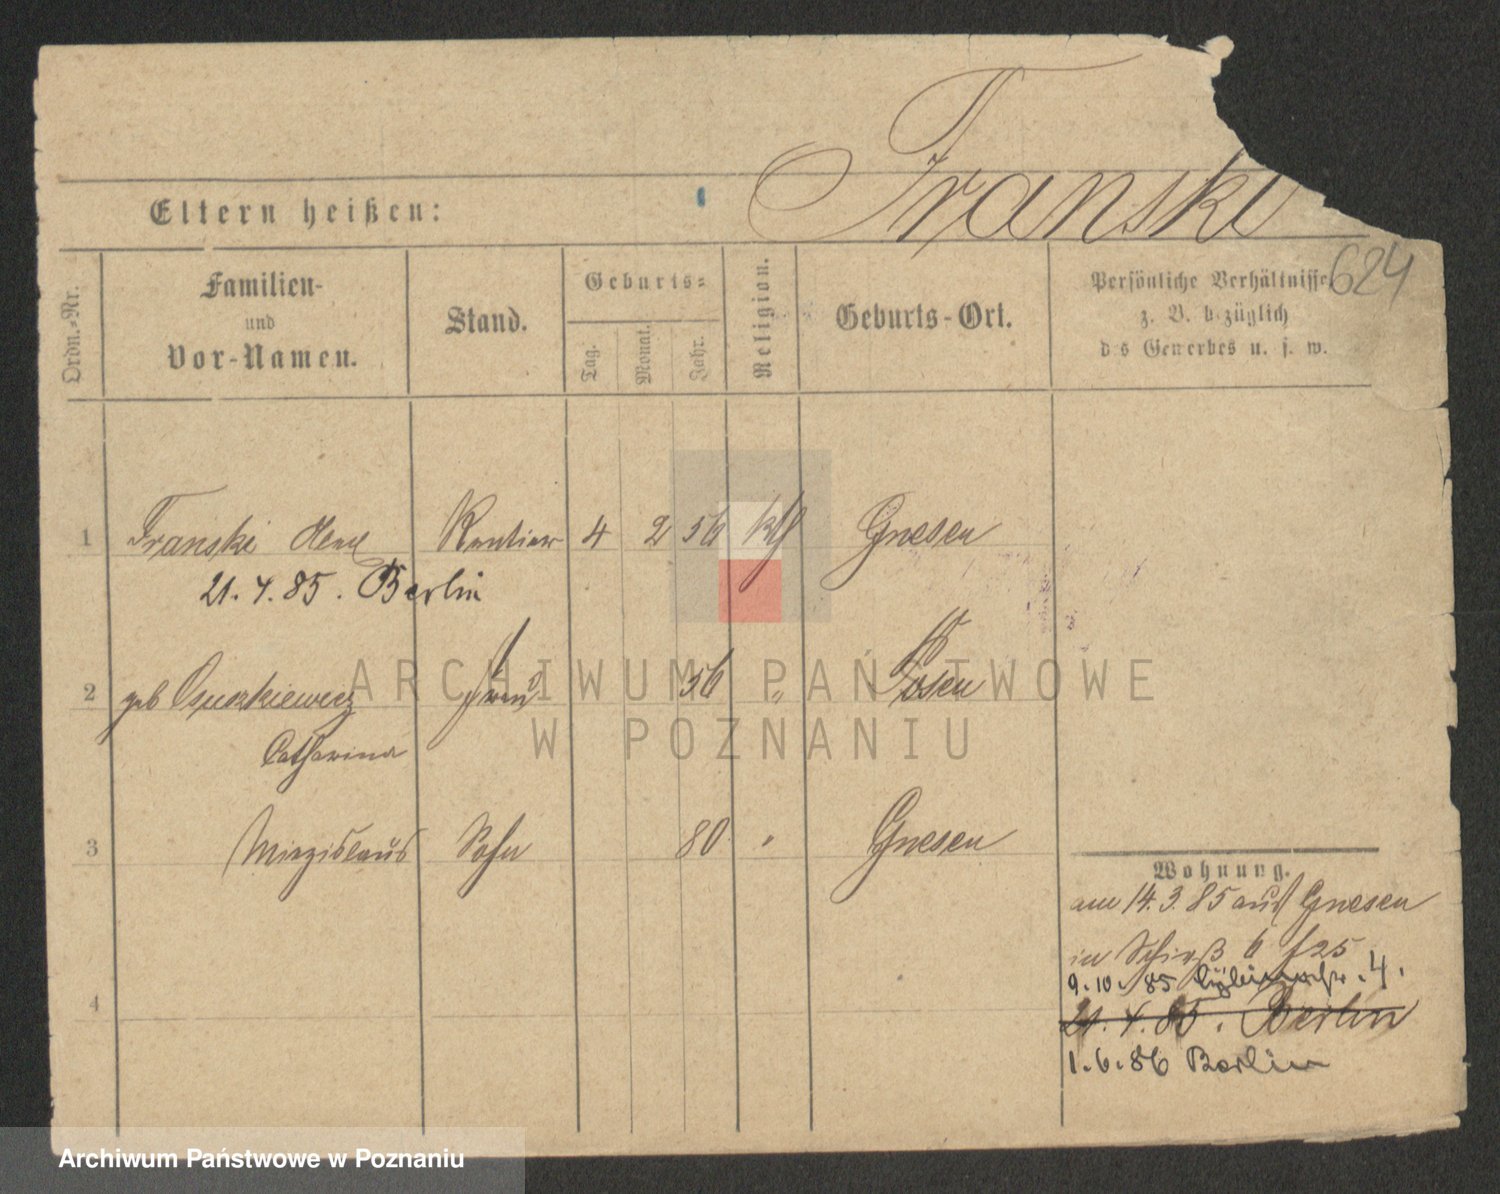 Franski
624
Eltern heißen:
Ordn.-Nr.
Familien-
und
Vor-Namen.
Stand.
Geburts-
Tag.
Monat.
Jahr.
Religion.
Geburts-Ort.
Persönliche Verhältnisse
z. B. bezüglich
des Gewerbes u. s. w.
1 Franski Rentier 4 2 56 kth Gnesen
21. 4. 85. Berlin
2 geb Frau 56 " Posen
Catharina
3 Miezislaus Sohn 80 " Gnesen
4
Wohnung.
am 14. 3. 85 aus Gnesen
in 6 f 25
9. 10. 85 4.
21. 4. 85. Berlin
1. 6. 86 Berlin
ARCHIWUM PAŃSTWOWE
W POZNANIU
Archiwum Państwowe w Poznaniu